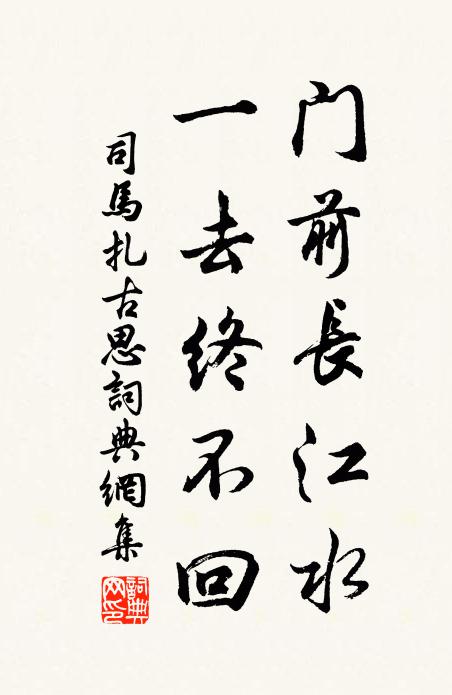 門前長江水
一去終不回
司馬扎古思詞典網集
詞典網印